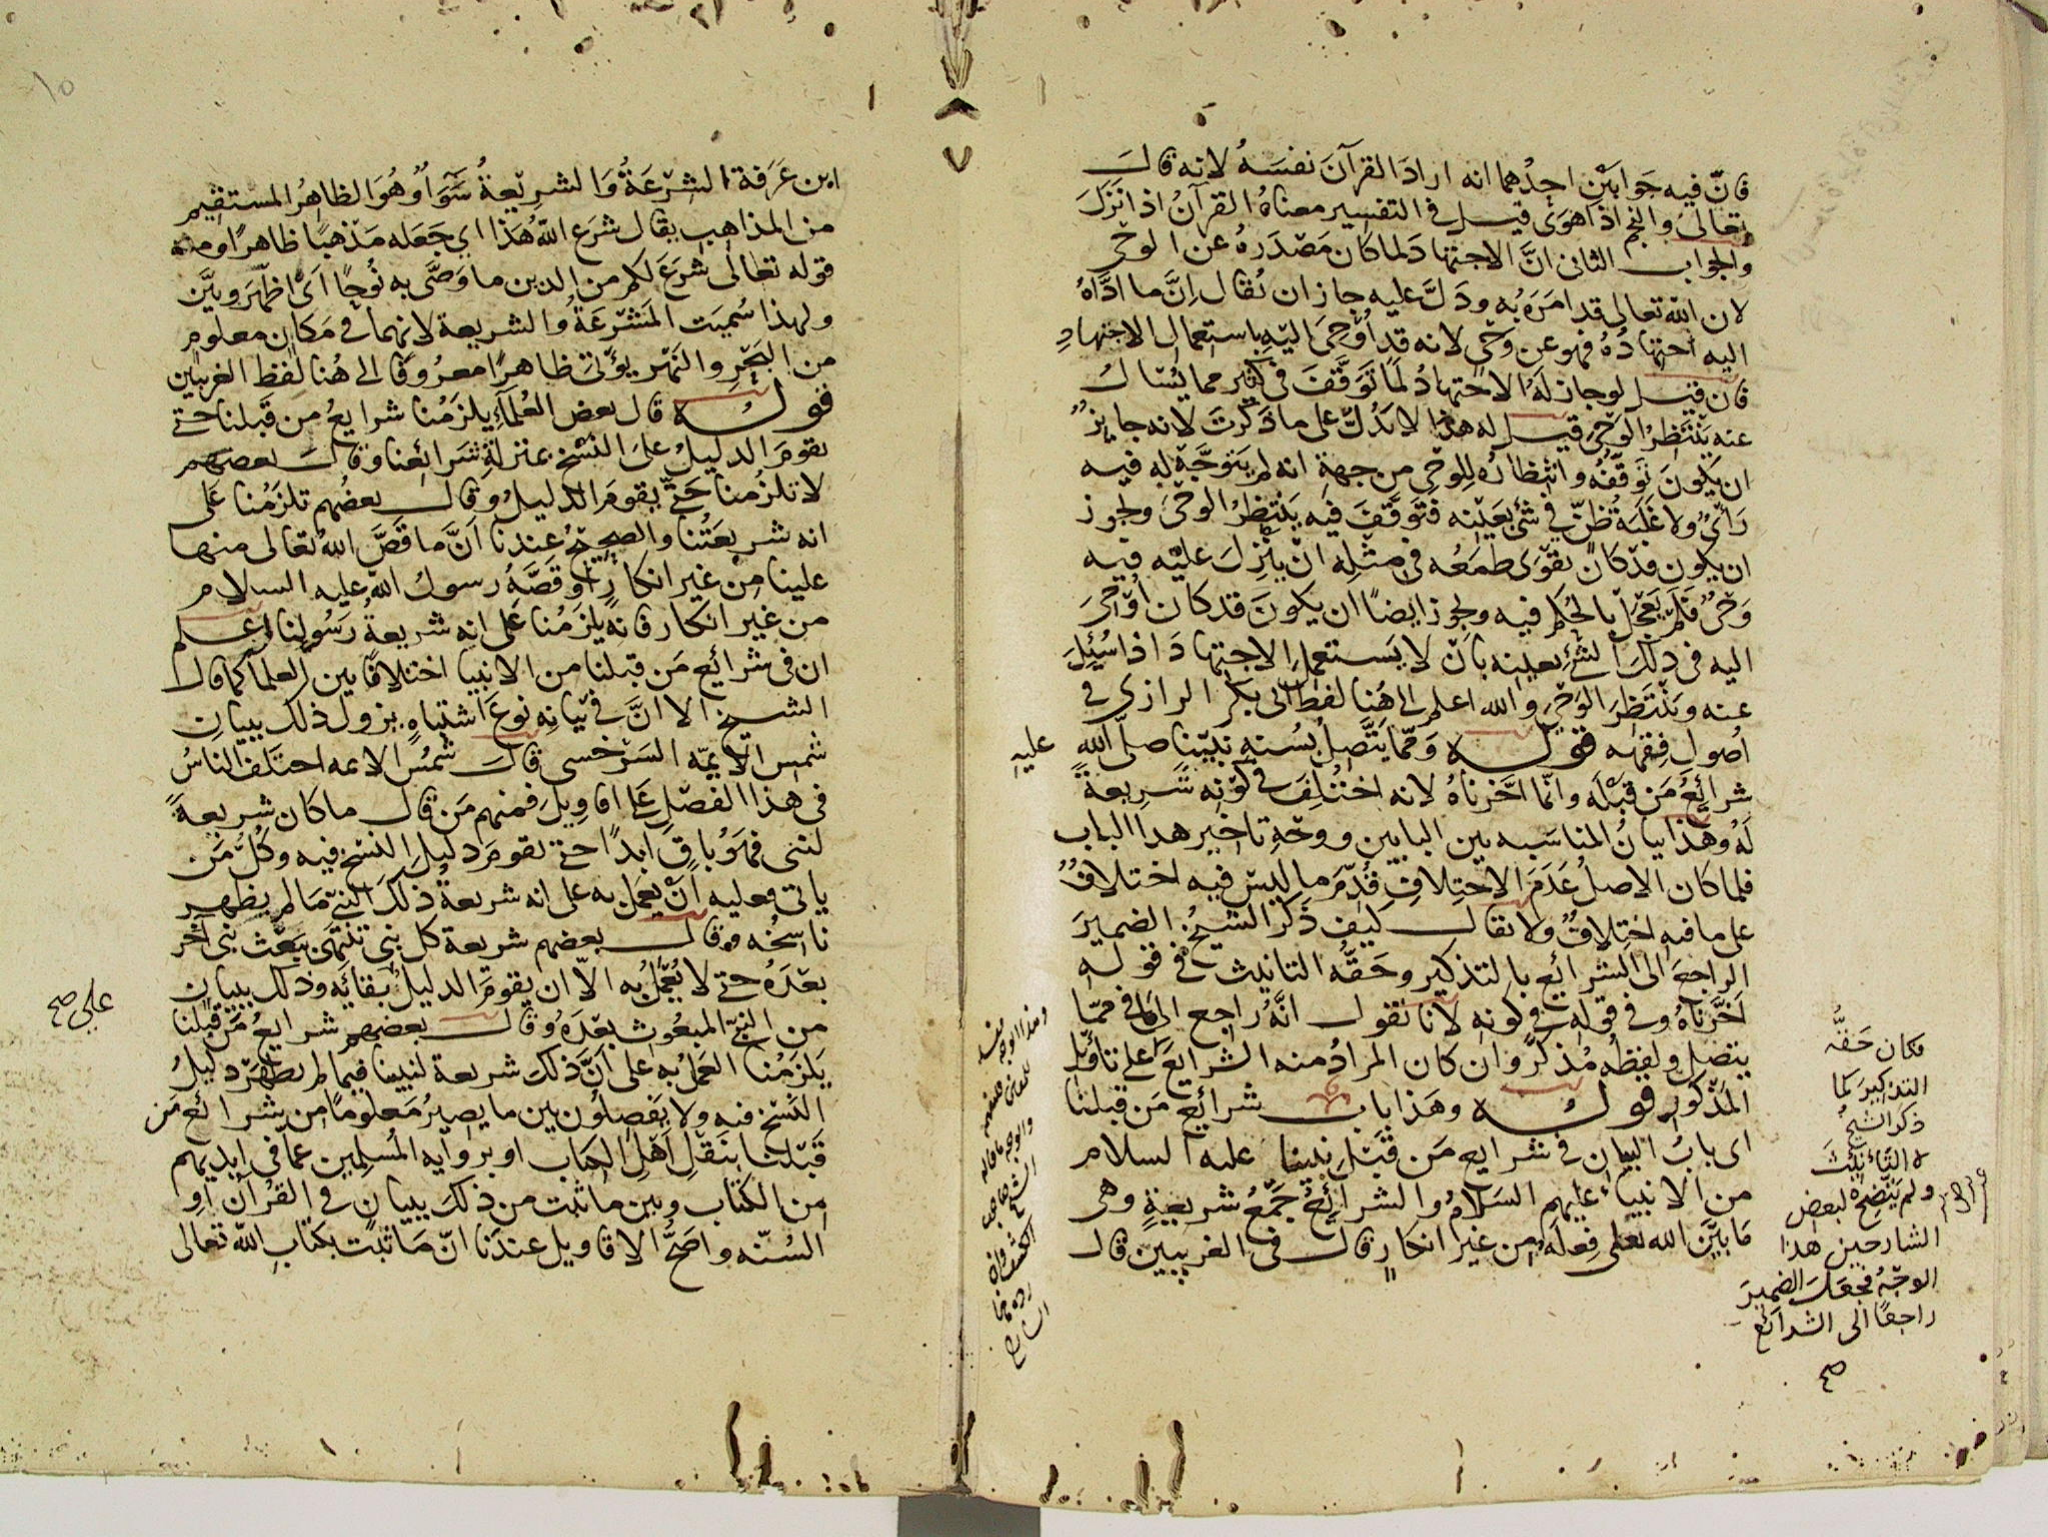 فانّ فيه جَوابَيْنِ احدُهما انه ارادَ القرآنَ نفسَهُ لانه قال
تعالى والنجم اذا هَوَى قيل في التفسير معناهُ القرآنُ اذا نَزَلَ
والجواب الثاني انَّ الاجتهادَ لما كان مَصْدَرهُ عن الوحْي
لان الله تعالى قد امَرَهُ به ودَلَّ عليه جاز ان يُقال اِنَّ ما ادَّاهُ
اليه اجتهادُهُ فهو عن وَحْيٍ لانه قد اُوْحِىَ اليْهِ باستعمال الاجتهادِ
فان قيل لوجاز لَهُ الاجتهادُ لَمَا تَوَقَّفَ في كثير مما يُسْأل
عنه يَنْتَظِرُ الوَحْىَ قيل له هذا لا يَدُلّ على ما ذكرتَ لانه جايزٌ
ان يكونَ تَوَقُّفُه وانْتِظارُه لِلوحْي من جهةِ انه لم يَتوَجَّهْ له فيه
رَأْىٌ ولا غَلَبَة ظَنّ في شئ بعَيْنِه فَتَوَقَّفَ فيه يَنْتَظِرُ الوحْىَ ويجوز
ان يكون قدْ كانَ يَقْوَى طمَعُه في مثلِه انْ يُنْزلَ عليْه فيه
وَحْىٌ فلم يَعْجَلْ بالحُكم فيه ويجوز ايضًا ان يكونَ قد كان اُوْحِىَ
اليه في ذلك الشئ بعينه بأن لا يَستعملَ الاجتهادَ اذا سُئِلَ
عنه ويَنْتَظِرَ الوَحْىَ والله اعلم الى هُنا لفظ ابى بكر الرازي في
اُصول فِقهه قوله وَممّا يتَّصِلُ بسُنةِ نبيّنا صلى الله عليه
شرائِعُ مَن قَبْلَه وانّما اَخّرناهُ لانه اخْتُلِفَ في كوْنِه شَريعةً
لَهُ وهذا بيانُ المناسَبه بين البابين ووجْهِ تاخير هذا الباب
فلما كان الاصلُ عَدَمَ الاختلافِ قُدِّمَ ما ليسَ فيه اختلافٌ
على ما فيه اختِلافٌ ولا يقال كيف ذكَر الشيخُ الضميرَ
الراجعَ الى الشرائع بالتذكير وحَقُّه التانيث في قوله
اَخّرناهُ وفى قوله في كونِه لانا نقول انَّهُ راجع الى ما في ممّا
يتصل ولفظُه مُذكرٌ وان كان المرادُ منه الشرايعَ على تاْويل
المَذْكور قوله وهذا باب شرائِع مَن قبلنا
اى بابُ البيان في شرايع مَن قَبْلَ نبينا عليه السلام
من الانبياء عليهم السَلامُ والشرائِعُ جَمْعُ شريعةٍ وهى
مَا بيَّنَ الله تعلى فِعلَه من غير انكارٍ قال في الغريبين قال
فكان حَقُّه
التذكيرَ كما
ذكر الشيخُ
لا التانيثَ
ولم يتّضِحْ لبعض
الشارحين هذا
الوجْهُ فجَعَلَ الضميرَ
راجعًا الى الشرائع
صح
ابن عَرَفة الشِرْعَةُ والشريعةُ سَوَآءٌ وهُوَ الظاهِرُ المستقيم
من المذاهب يقال شَرَع اللهُ هَذا اي جَعَله مَذهبًا ظاهرًا ومنه
قوله تعالى شَرَعَ لكم من الدين ما وَصَّى به نُوحًا اىْ اظهَرَ وبيَّن
ولهذا سُميَت المَشْرَعَةُ والشريعة لانهما في مَكان معلوم
من البَحْرِ والنَهْر يؤتى ظاهرًا معروفا الى هُنا لفظ الغريبين
قوله قال بعض العُلمآءِ يلزَمُنا شرايعُ من قَبلنا حتى
يقومَ الدليلُ على النسْخ بمنزلة شَرائِعنا وقال بعضهم
لا تلزمنا حتّى يقومَ الدليلُ وقال بعضُهم تلزَمُنا على
انه شريعَتُنا والصحيحُ عِندنا اَنَّ ما قَصَّ اللهُ تعالى منها
علينا مِن غير انكارٍ او قَصَّهُ رسولُ الله عليه السلام
من غير انكار فانه يلزَمُنا عَلى انه شريعةُ رَسُولِنا اعلم
ان في شرائع مَن قبلنا من الانبيا اختلافًا بين العلمآ كما قال
الشيخ الا انَّ في بيَانه نوعَ اشتباهٍ يزول ذلك ببيان
شمس الايمّه السَرْخسى قال شمْسُ الائمه اختَلَف الناسُ
في هذا الفصْلِ عَلى اقاويلَ فمنهم مَن قال ما كان شريعةً
لنبى فهوَ باقٍ ابدًا حتى يقومَ دليلُ النسْخ فيه وكُلُّ مَن
ياتى فعليه اَنْ يعْمَل به على انه شريعةُ ذلكَ النبىّ مَا لم يظهر
ناسخُه وقال بعضهم شريعة كل نبى تنتهى ببَعْث نبى آخَر
بعْدَهُ حتى لا يُعْمَلُ به الاّ ان يقومَ الدليلُ على بقائِه وذلك ببيان
من النبىّ المبعُوث بعْدَهُ وقال بعضهم شرايعُ مَن قبْلنا
يَلزَمُنا العَمَلُ به على اَنَّ ذلك شريعة لنبينا فيما لم يظهَرْ دليلُ
النَسْخ فيه ولا يَفْصِلوُن بين ما يَصيرُ مَعلومًا من شرائِع مَن
قَبْلَنا بنَقْلِ اَهْلِ الكتاب او بروايه المُسلِمين عمّا في ايديهم
من الكتاب وبين ما ثبت من ذلكَ ببيانٍ في القُرآن اَوِ
السُنّه واصَحُّ الاقاويل عندَنا انّ مَا ثبَت بكتابِ الله تعالى
على صح